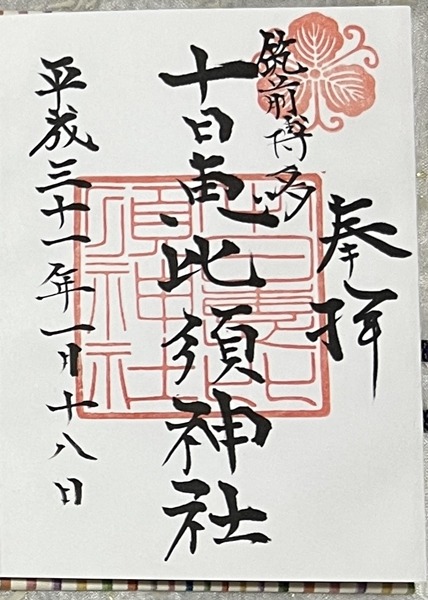 奉拝
筑前博多
十日恵比須神社
平成三十一年一月十八日
十日恵比
須神社